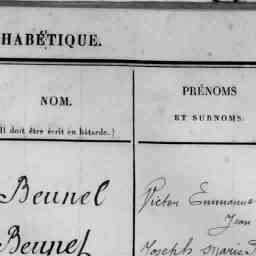 HABÉTIQUE.
NOM.
Il doit être écrit en bâtarde.)
PRÉNOMS
ET SURNOMS.
Beunel Victor Emmanue
Jean
Beunel Joseph Marie